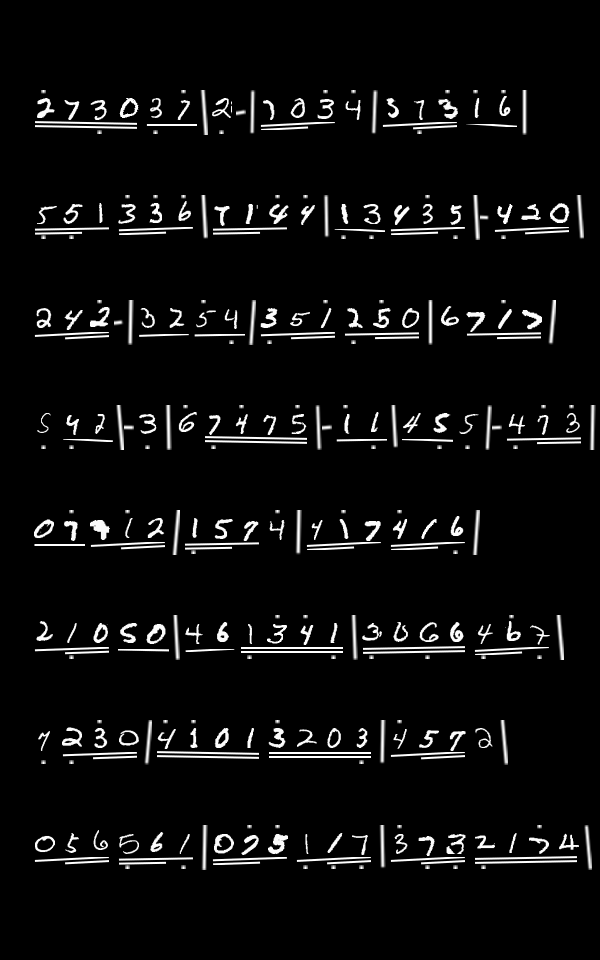 273037|2-|1034|37316
551336|7144|13435|-420
242-|3254|351250|6717
542|-3|67475|-11|455|-473
07912|1574|417416
21050|461341|3066467
7230|41013203|4572
056561|075117|3732174